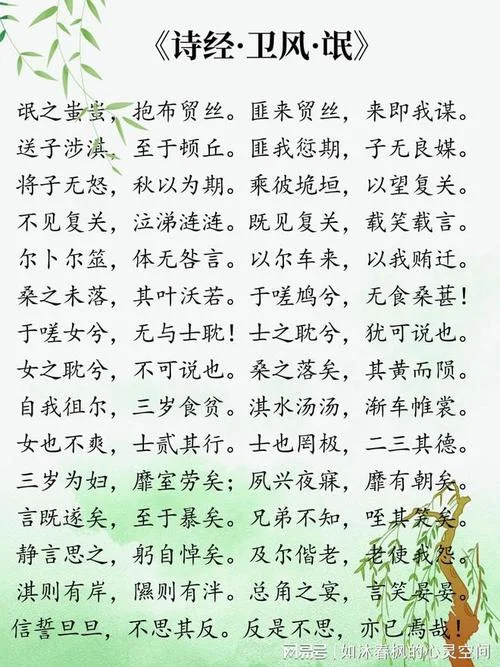 《诗经·卫风·氓》
氓之蚩蚩，抱布贸丝。匪来贸丝，来即我谋。
送子涉淇，至于顿丘。匪我愆期，子无良媒。
将子无怒，秋以为期。乘彼垝垣，以望复关。
不见复关，泣涕涟涟。既见复关，载笑载言。
尔卜尔筮，体无咎言。以尔车来，以我贿迁。
桑之未落，其叶沃若。于嗟鸠兮，无食桑葚！
于嗟女兮，无与士耽！士之耽兮，犹可说也。
女之耽兮，不可说也。桑之落矣，其黄而陨。
自我徂尔，三岁食贫。淇水汤汤，渐车帷裳。
女也不爽，士贰其行。士也罔极，二三其德。
三岁为妇，靡室劳矣；夙兴夜寐，靡有朝矣。
言既遂矣，至于暴矣。兄弟不知，咥其笑矣。
静言思之，躬自悼矣。及尔偕老，老使我怨。
淇则有岸，隰则有泮。总角之宴，言笑晏晏。
信誓旦旦，不思其反。反是不思，亦已焉哉！
网易号 | 如沐春枫的心灵空间